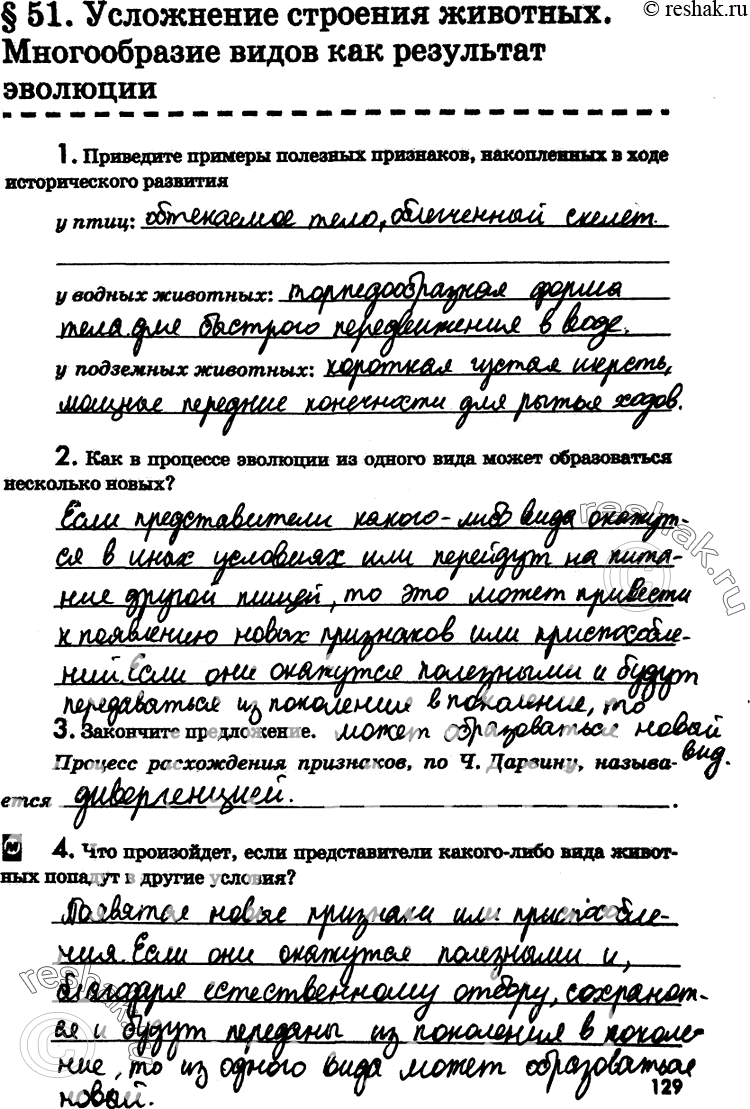 © reshak.ru
§ 51. Усложнение строения животных.
Многообразие видов как результат
эволюции
1. Приведите примеры полезных признаков, накопленных в ходе
исторического развития
у птиц: обтекаемое тело, облегченный скелет.
у водных животных: торпедообразная форма
тела для быстрого передвижения в воде.
у подземных животных: короткая густая шерсть,
мощные передние конечности для рытья ходов.
2. Как в процессе эволюции из одного вида может образоваться
несколько новых?
Если представители какого-либо вида окажут-
ся в иных условиях или перейдут на пита-
ние другой пищей, то это может привести
к появлению новых признаков или приспособле-
ний. Если они окажутся полезными и будут
передаваться из поколения в поколение, то
3. Закончите предложение. может образоваться новый
вид.
Процесс расхождения признаков, по Ч. Дарвину, называ-
ется дивергенцией.
м 4. Что произойдет, если представители какого-либо вида живот-
ных попадут в другие условия?
Появятся новые признаки или приспособле-
ния. Если они окажутся полезными и,
благодаря естественному отбору, сохранят-
ся и будут переданы из поколения в поколе-
ние, то из одного вида может образоваться
новый.
129
reshak.ru
©
reshak.ru
©